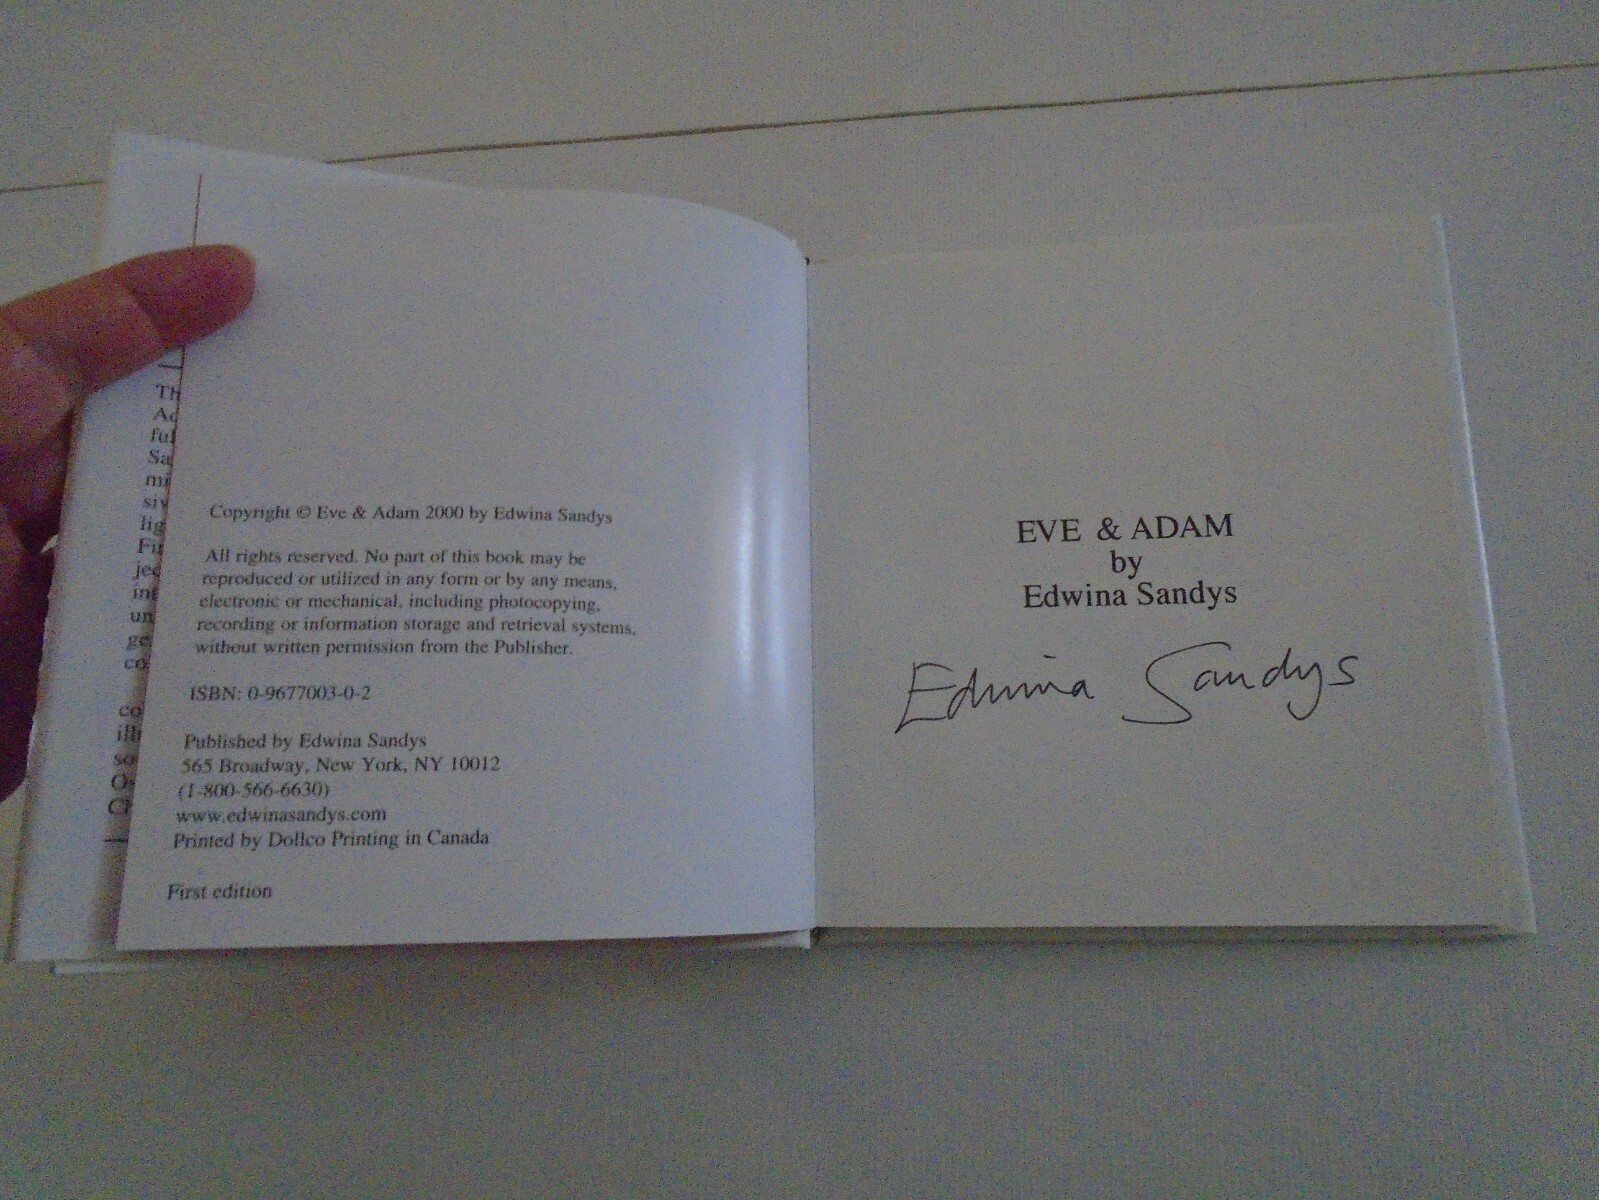 Th
Ad
ful
Sa
mi
siv
lig
Fir
jec
int
un
ge
co
co
illi
so
Copyright © Eve & Adam 2000 by Edwina Sandys
All rights reserved. No part of this book may be
reproduced or utilized in any form or by any means,
electronic or mechanical, including photocopying,
recording or information storage and retrieval systems,
without written permission from the Publisher.
ISBN: 0-9677003-0-2
Published by Edwina Sandys
565 Broadway, New York, NY 10012
(1-800-566-6630)
www.edwinasandys.com
Printed by Dollco Printing in Canada
First edition
EVE & ADAM
by
Edwina Sandys
Edwina Sandys